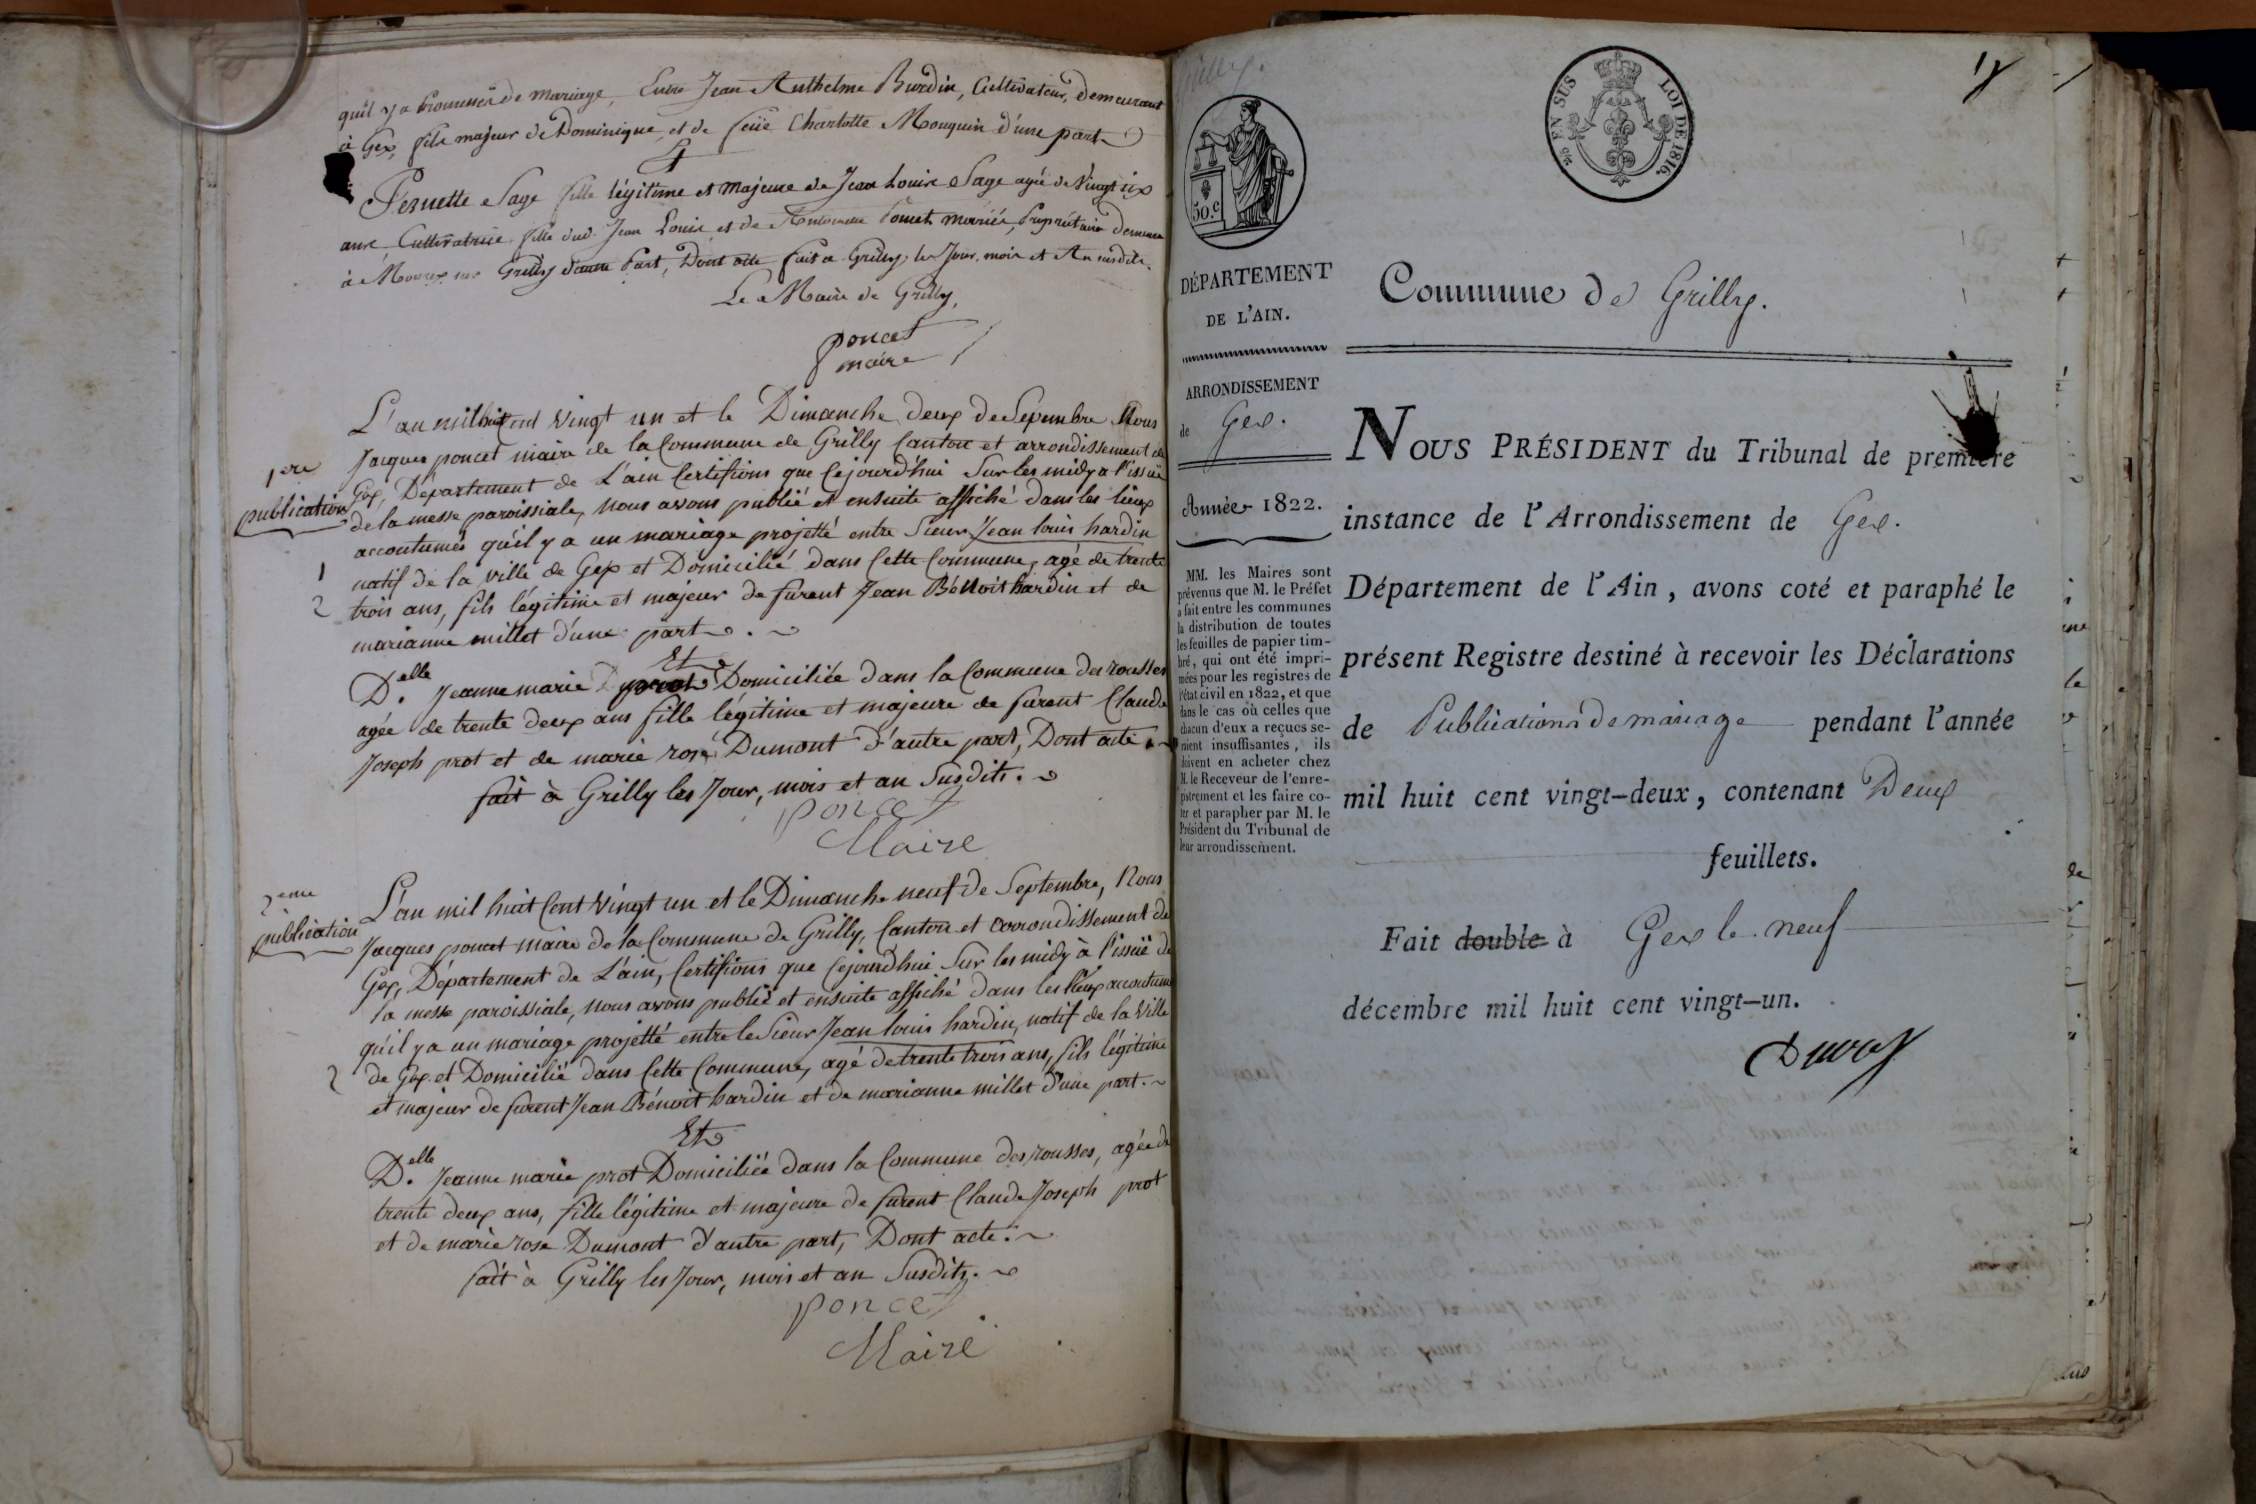 qu'il y a promesse de mariage, Entre Jean Anthelme Burdin, Cultivateur, demeurant
à Gex, fils majeur de Dominique, et de feüe Charlotte Mouquin d'une part
Et
Pernette Sage fille légitime et majeure de Jean Louis Sage agée de Vingt six
ans, Cultivatrice fille dud. Jean Louis et de Poncet mariés, propriétaire
à sur Grilly d'autre Part, Dont acte fait à Grilly les Jour, mois et An susdits.
Le Maire de Grilly,
poncet
maire
1ere
publication
L'an mil huit Cent Vingt un et le Dimanche deux de Sepembre Nous
Jacques poncet maire de la Commune de Grilly Canton et arrondissement de
Gex, Département de L'ain Certifions que Cejourd'hui Sur les midy a l'issüe
de la messe paroissiale, nous avons publié et ensuite affiché dans les lieux
accoutumés qu'il y a un mariage projetté entre Sieur Jean louis hardin
natif de la ville de Gex et Domicilié dans Cette Commune, agé de trente
trois ans, fils légitime et majeur de furent Jean Bénoit hardin et de
marianne millet d'une part.
1
2
Et
D.elle Jeanne marie prot Domiciliée dans la Commune des rousses
agée de trente deux ans fille légitime et majeure de furent Claude
Joseph prot et de marie rose Dumont d'autre part, Dont acte.
fait à Grilly les Jour, mois et an Susdits.
poncet
Maire
2eme
publication
L'an mil huit Cent Vingt un et le Dimanche neuf de Septembre, Nous
Jacques poncet maire de la Commune de Grilly, Canton et arrondissement de
Gex, Département de L'ain, Certifions que Cejourd'hui Sur les midy à l'issüe de
la messe paroissiale, nous avons publié et ensuite affiché dans les lieux accoutumé
qu'il y a un mariage projetté entre le Sieur Jean louis hardin, natif de la Ville
de Gex et Domicilié dans Cette Commune, agé de trente trois ans, fils légitime
et majeur de furent Jean Bénoit hardin et de marianne millet d'une part.
2
Et
D.elle Jeanne marie prot Domiciliée dans la Commune des rousses, agée de
trente deux ans, fille légitime et majeure de furent Claude Joseph prot
et de marie rose Dumont d'autre part, Dont acte.
fait à Grilly les Jour, mois et an Susdits.
poncet
Maire
EN SUS
LOI DE 1816.
50.c
DÉPARTEMENT
DE L'AIN.
ARRONDISSEMENT
de Gex.
Année 1822.
MM. les Maires sont
prévenus que M. le Préfet
a fait entre les communes
la distribution de toutes
les feuilles de papier tim-
bré, qui ont été impri-
mées pour les registres de
l'état civil en 1822, et que
dans le cas où celles que
chacun d'eux a reçues se-
roient insuffisantes, ils
doivent en acheter chez
M. le Receveur de l'enre-
gistrement et les faire co-
ter et parapher par M. le
Président du Tribunal de
leur arrondissement.
Commune de Grilly.
NOUS PRÉSIDENT du Tribunal de première
instance de l'Arrondissement de Gex.
Département de l'Ain, avons coté et paraphé le
présent Registre destiné à recevoir les Déclarations
de Publications de mariage pendant l'année
mil huit cent vingt-deux, contenant Deux
feuillets.
Fait double à Gex le neuf
décembre mil huit cent vingt-un.